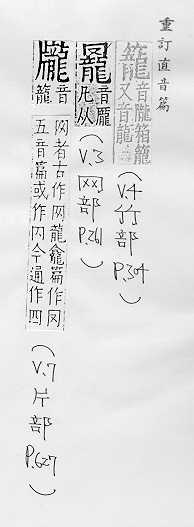 重訂直音篇
籠 音朧箱籠
又音龍等
(V.4竹部 P.304)
音龎
凡从
网者古作网龍龕篇作冈
五音篇或作冈今通作四
(V.3网部 P.261)
音
龍
(V.7片部 P.627)